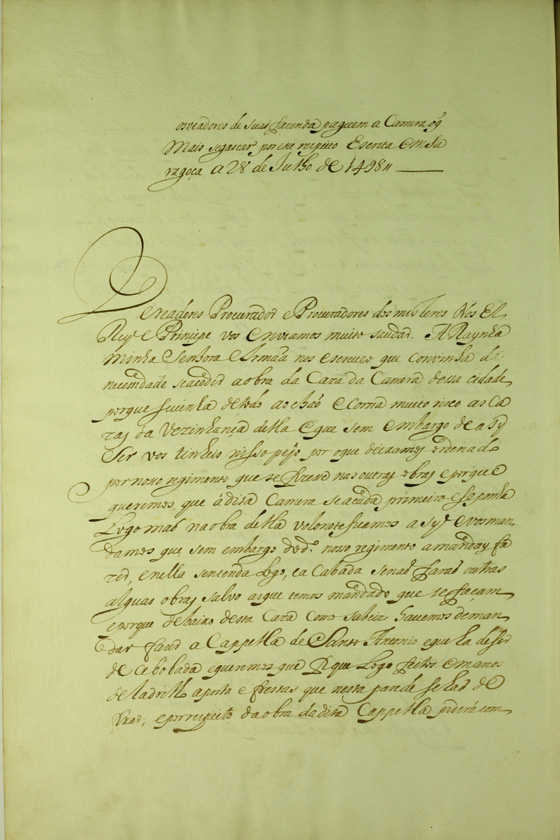 oveadores de suas fazenda paguem a Camera oq̃
Mais se gastar por este respeito Escrita em Sa
ragoça a 28 de Julho de 1498 //
Vereadores Procurador e Procuradores dos misteres Nós El
Rey e Principe vos enviamos muito saudar. A Raynha
minha Senhora e Irmãa nos escreveo que convinha de
necessidade se acudir a obra da Caza da Camera dessa cidade
porque se vinha de todo ao chaõ e corria muito risco as ca
zas da vezinhança della e que sem embargo de a sy
ser vos tinheis nisso pejo por o que deixamos ordenado
por novo regimento que se fizesse nas outras obras e porque
queremos que á dita Camera se acuda primeiro e se ponha
Logo maõ na obra della volo notificamos a sy e vos man
damos que sem embargo do d.º novo regimento a manday fa
zer, e nella se entenda logo, e acabada se naõ faraõ outras
alguãs obras salvo as que temos mandado que se façam
e porque debaixo desta Caza como sabeis havemos de man
dar fazer a Cappella de Santo Antonio e que ha de ser
de abobada queremos que logo feitos e manos
de ladrilho a porta e frestas que nesta parede se haõ de
fazer, e por respeito da obra da dita Cappella poderá com